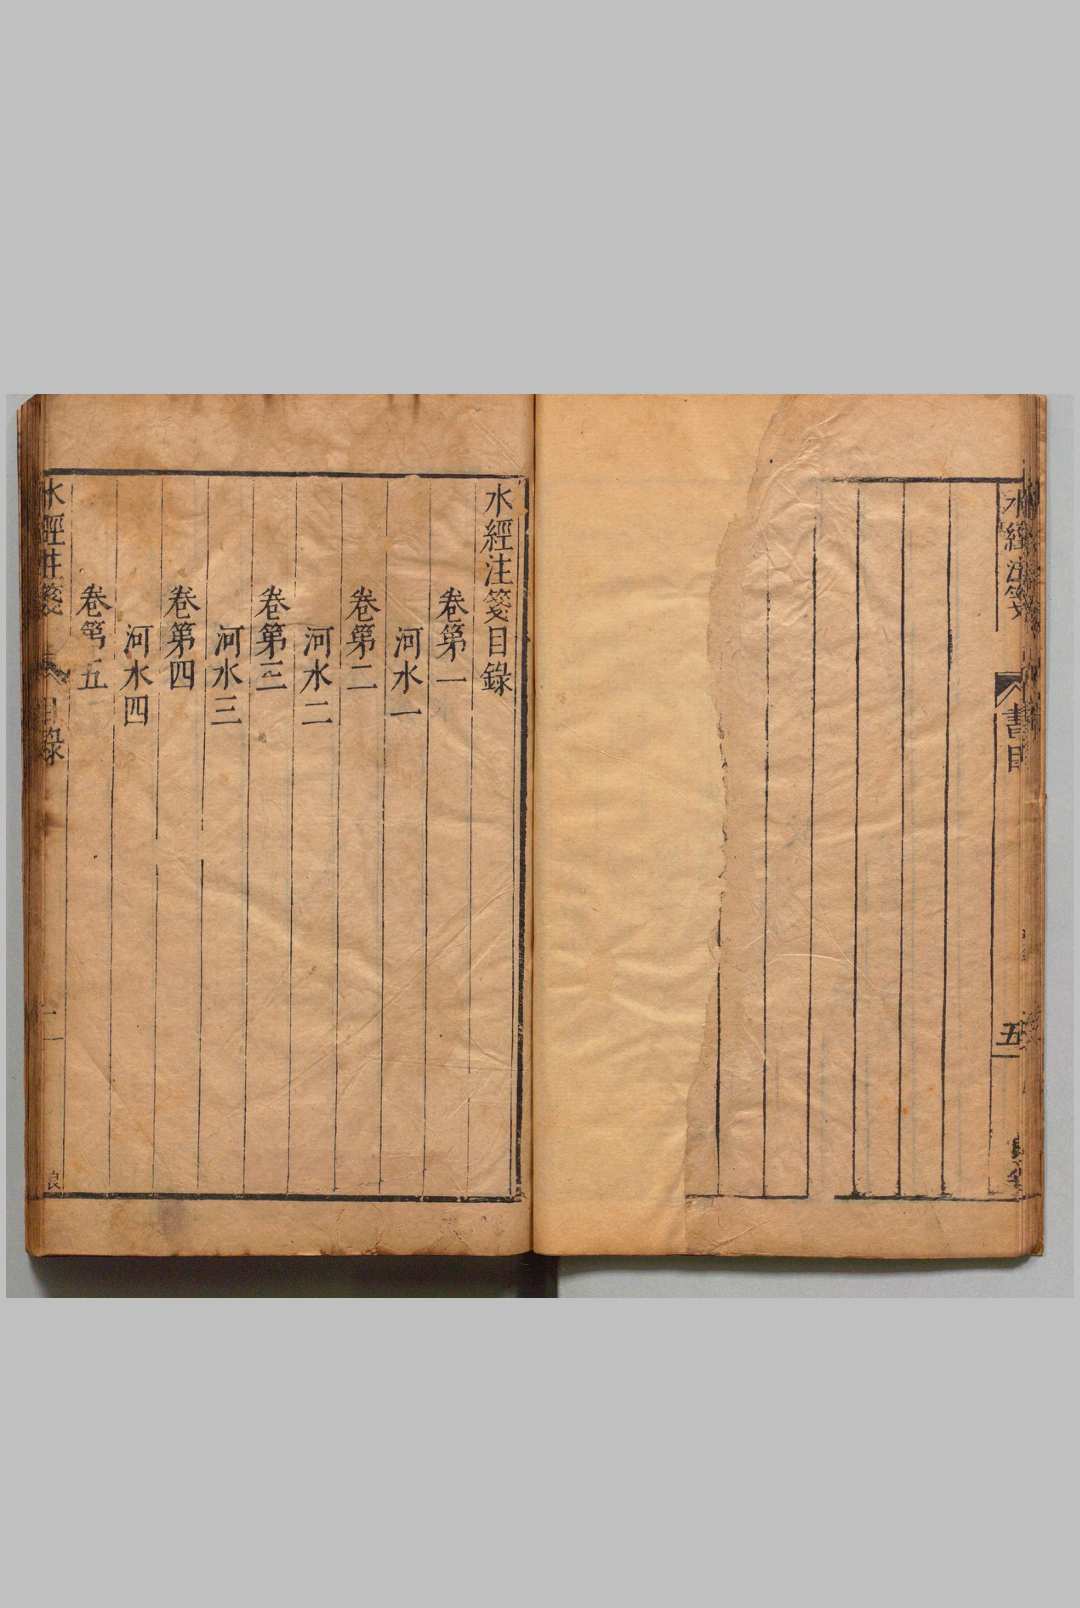 水經注箋
書目
五
水經注箋目錄
卷第一
河水一
卷第二
河水二
卷第三
河水三
卷第四
河水四
卷第五
水經注箋
目錄
一